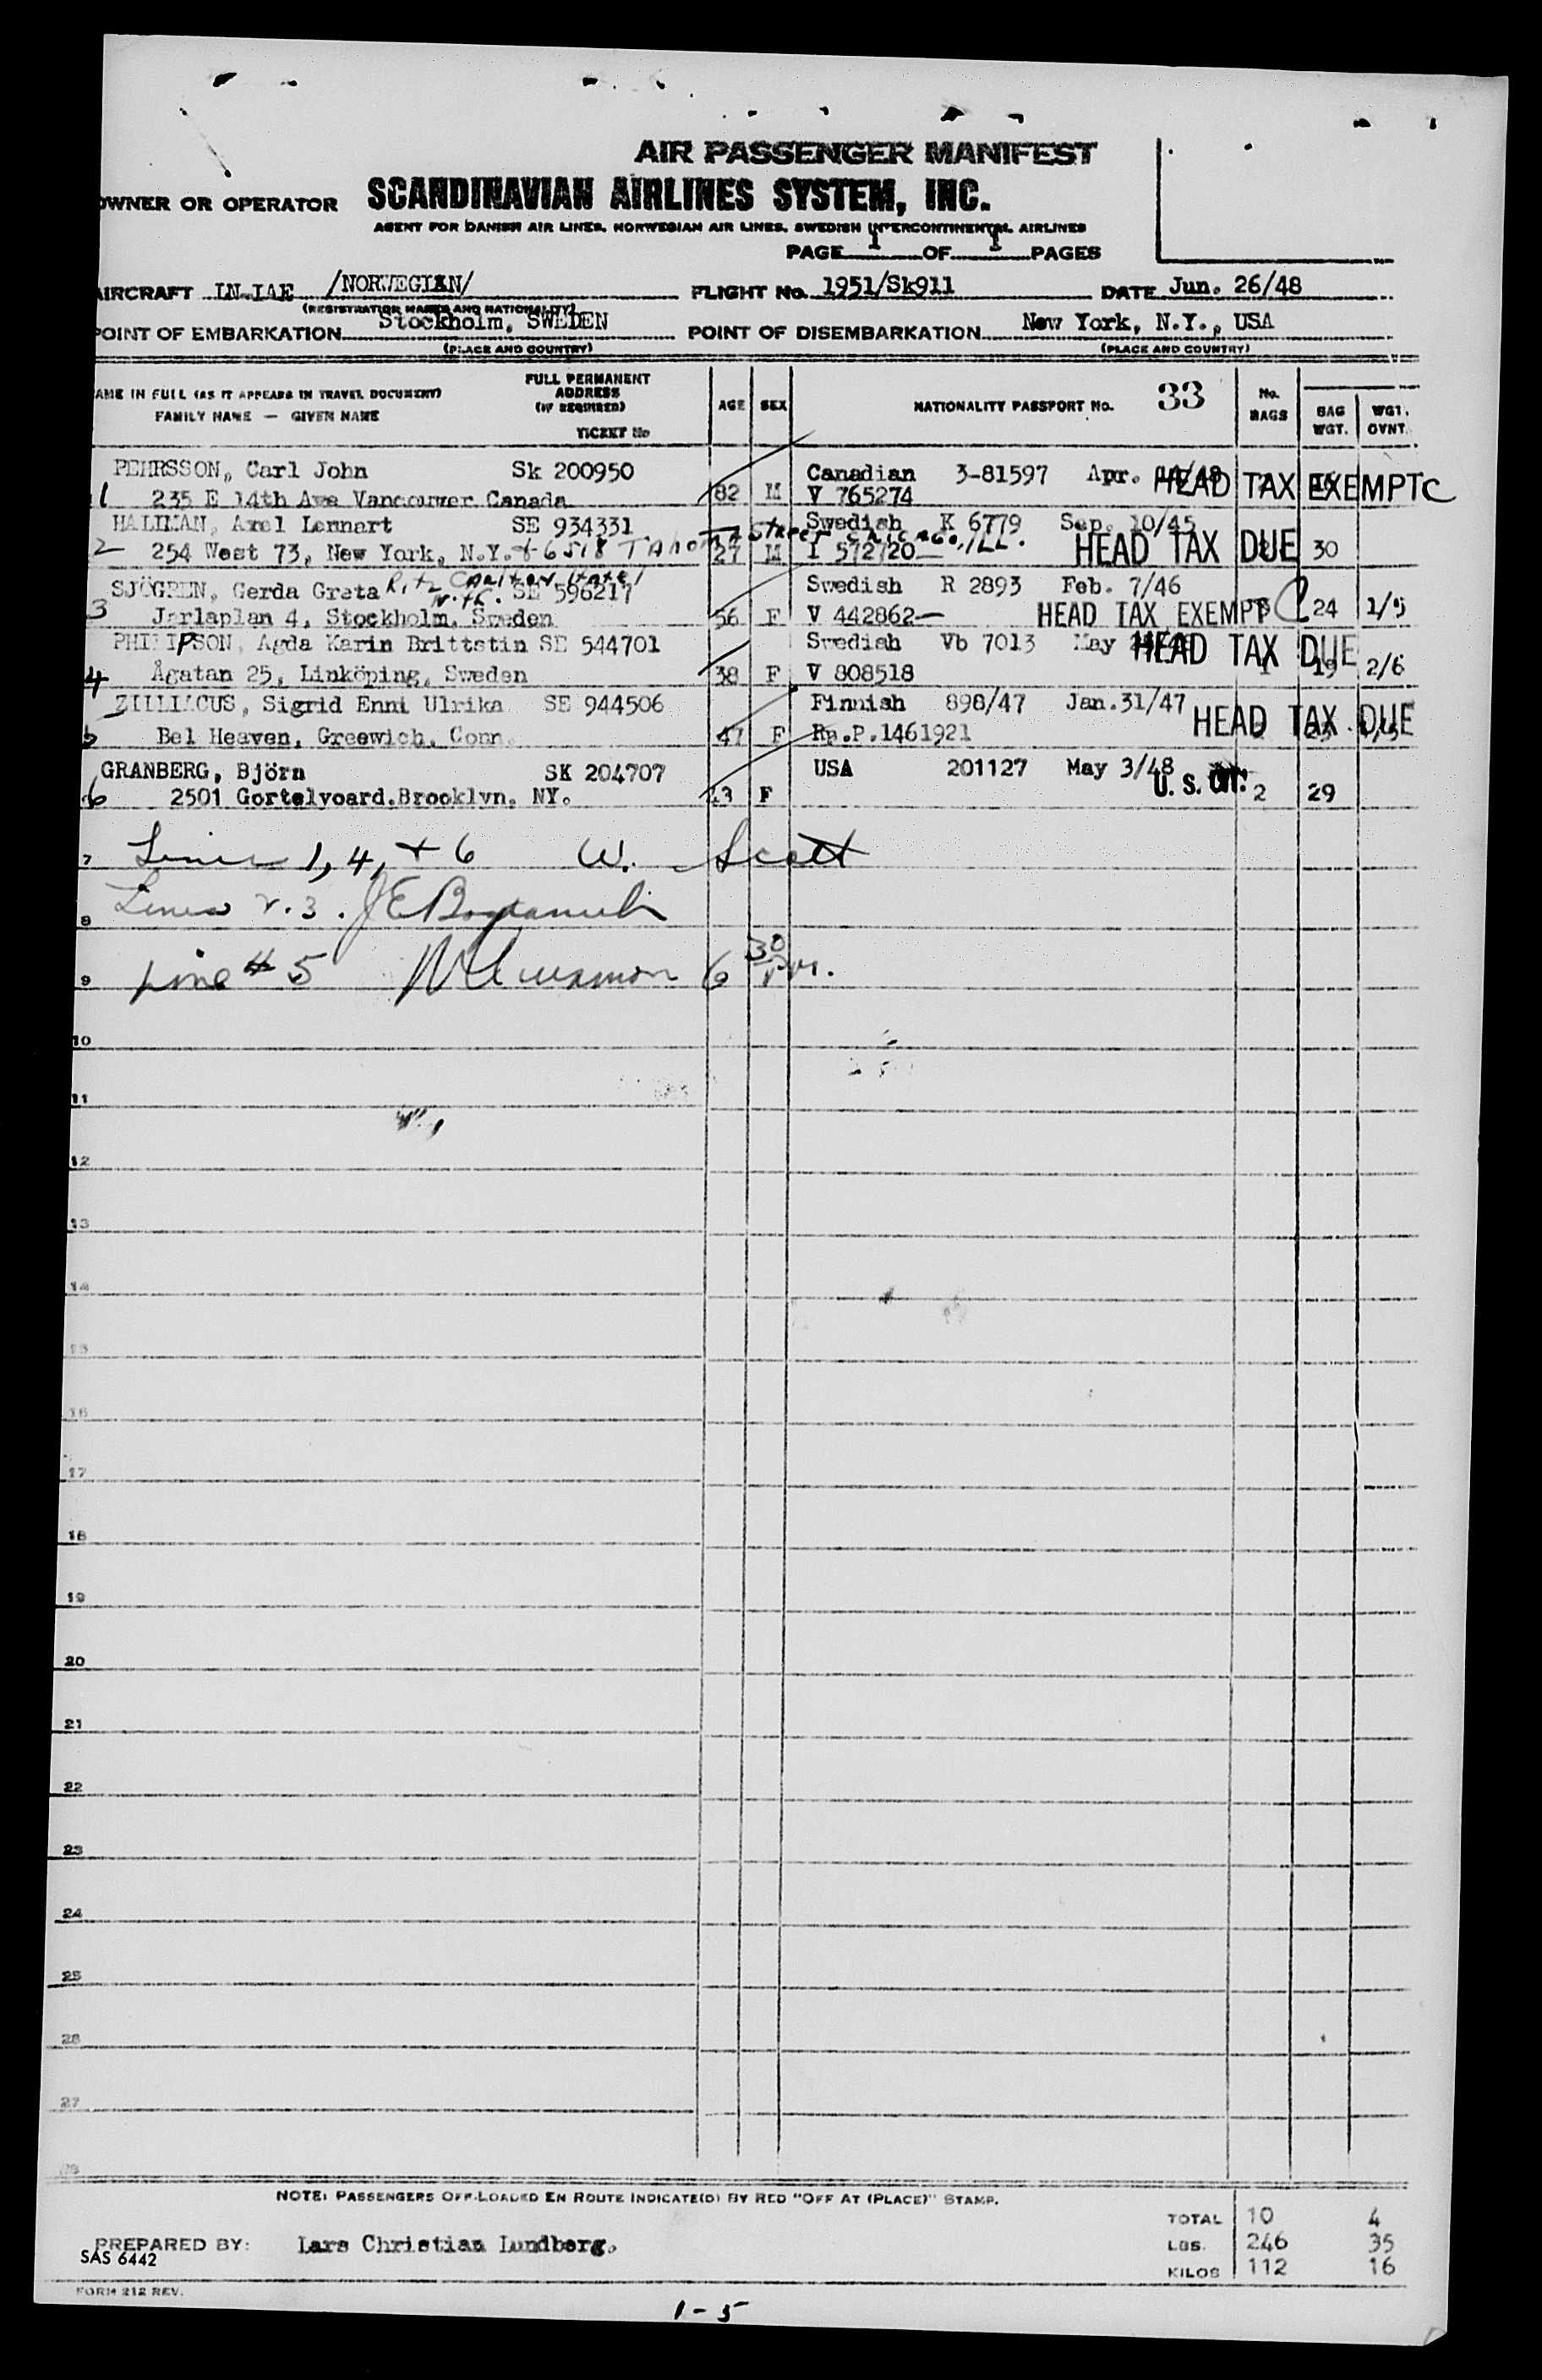 AIR PASSENGER MANIFEST
OWNER OR OPERATOR SCANDINAVIAN AIRLINES SYSTEM, INC.
AGENT FOR DANISH AIR LINES, NORWEGIAN AIR LINES, SWEDISH INTERCONTINENTAL AIRLINES
PAGE 1 OF 1 PAGES
AIRCRAFT LN-IAE /NORWEGIAN/ FLIGHT No. 1951/Sk911 DATE Jun. 26/48
(REGISTRATION MARKS AND NATIONALITY)
POINT OF EMBARKATION Stockholm, SWEDEN POINT OF DISEMBARKATION New York, N.Y., USA
(PLACE AND COUNTRY) (PLACE AND COUNTRY)
NAME IN FULL (AS IT APPEARS IN TRAVEL DOCUMENT)
FAMILY NAME — GIVEN NAME
FULL PERMANENT
ADDRESS
(IF REQUIRED)
TICKET No
AGE SEX NATIONALITY PASSPORT No. 33 No. BAGS BAG WGT. WGT. OVNT.
PEHRSSON, Carl John Sk 200950 Canadian 3-81597 Apr. HEAD TAX EXEMPT C
1 235 E 14th Ave Vancouver Canada 82 M V 765274
HALLMAN, Axel Lennart SE 934331 Swedish K 6779 Sep. 10/45
2 254 West 73, New York, N.Y. + 6518 TAHOMA STREET CHICAGO, ILL. 27 M I 572720— HEAD TAX DUE 30
SJÖGREN, Gerda Greta Ritz Carlton Hotel N.Y.C. SE 596217 Swedish R 2893 Feb. 7/46
3 Jarlaplan 4, Stockholm, Sweden 56 F V 442862— HEAD TAX EXEMPT C 24 1/5
PHILIPSON, Agda Karin Brittstin SE 544701 Swedish Vb 7013 May HEAD TAX DUE
4 Ågatan 25, Linköping, Sweden 38 F V 808518 1 19 2/6
ZILLIACUS, Sigrid Enni Ulrika SE 944506 Finnish 898/47 Jan.31/47 HEAD TAX DUE
5 Bel Heaven, Greewich, Conn. 47 F Rp.P.1461921
GRANBERG, Björn SK 204707 USA 201127 May 3/48 U. S. CIT.
6 2501 Gortelyoard.Brooklyn. NY. 43 F 2 29
7 Lines 1, 4, + 6 W. Scott
8 Lines 2. 3. J E
9 Line # 5 6 30 P.M.
10
11
12
13
14
15
16
17
18
19
20
21
22
23
24
25
26
27
28
NOTE: PASSENGERS OFF-LOADED EN ROUTE INDICATE(D) BY RED "OFF AT (PLACE)" STAMP.
TOTAL 10 4
PREPARED BY: Lars Christian Lundberg. LBS. 246 35
SAS 6442
KILOS 112 16
FORM 212 REV.
1-5